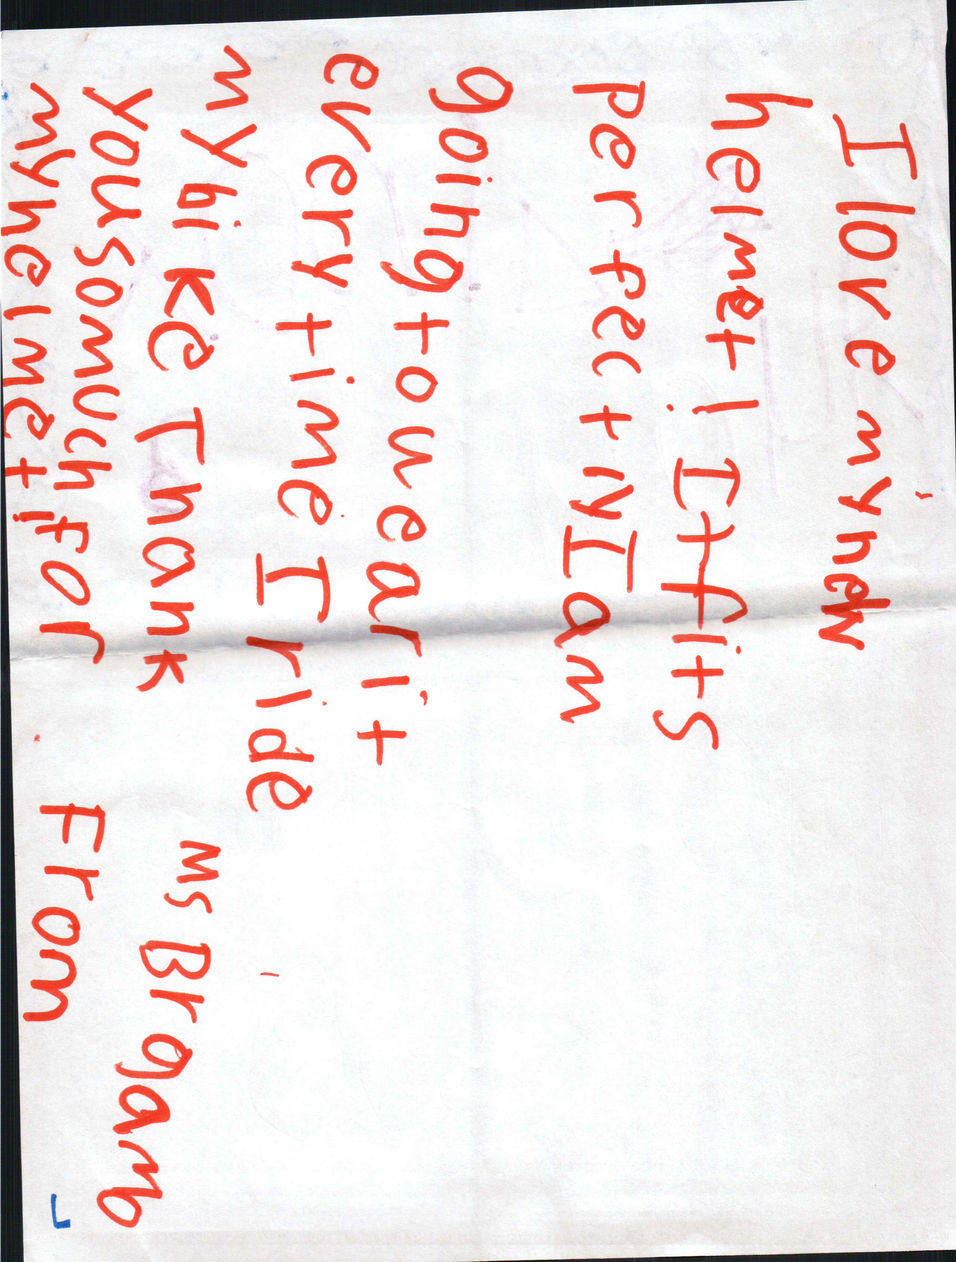 I love my new
helmet! It fits
perfectly I am
going to wear it
every time I ride
my bike Thank
you so much for
my helmet!
From
Ms Brgamo